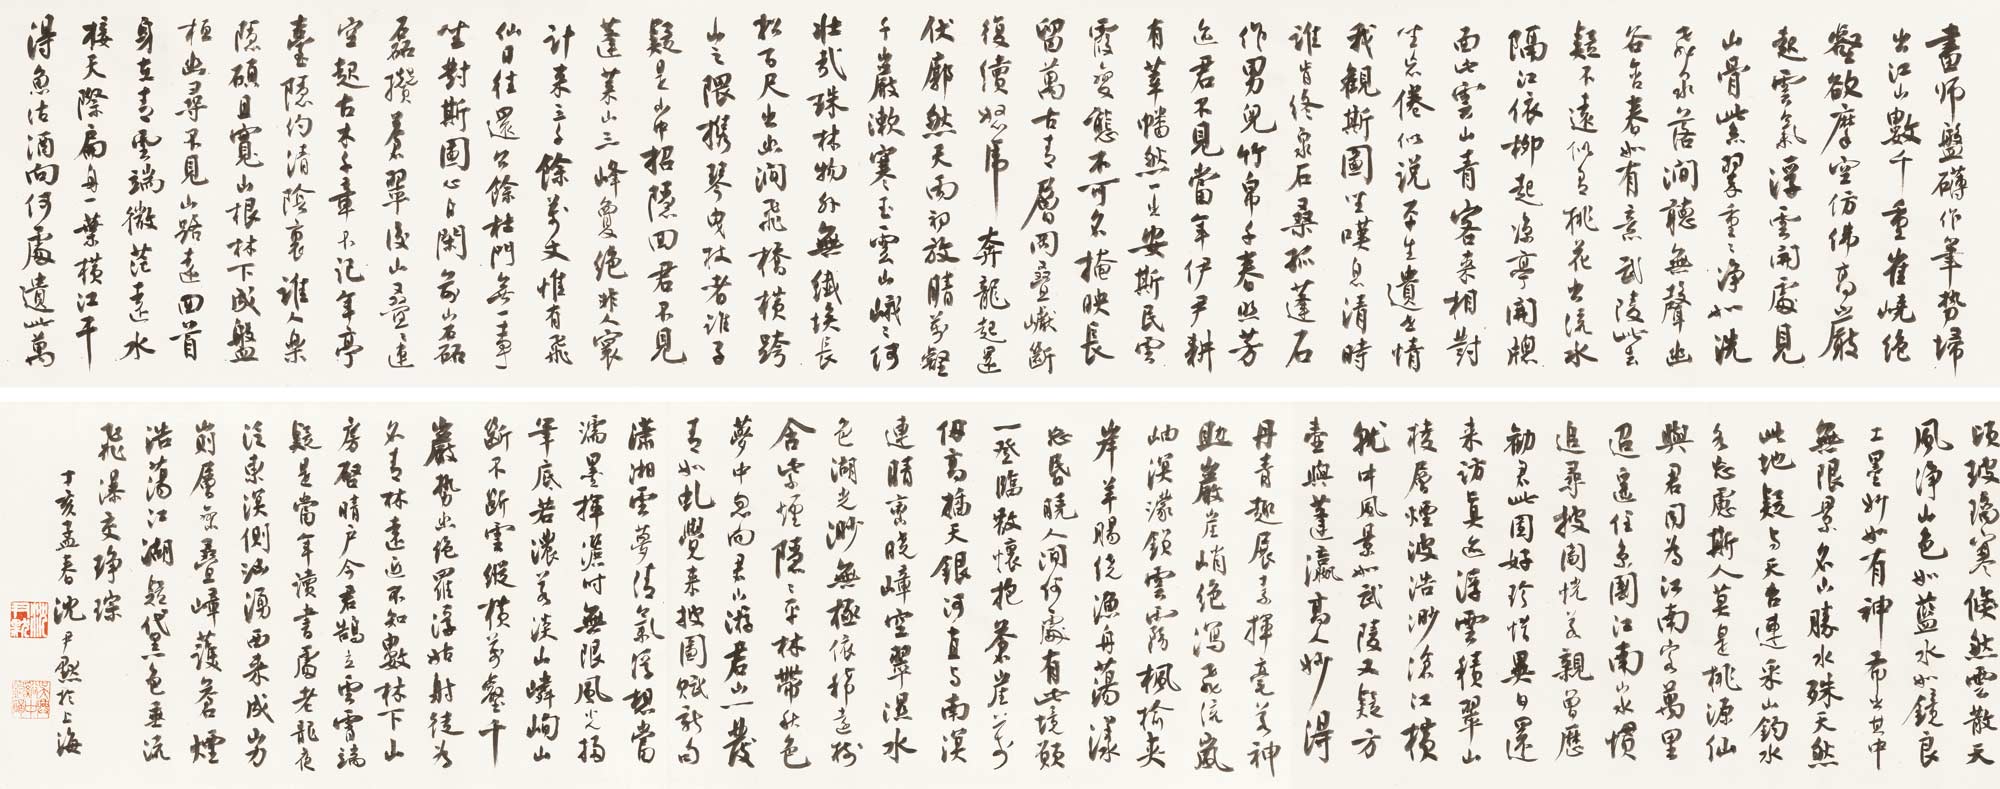 畫師盤礴作筆勢埽
出江山數千重崔嶢絕
壑欲摩空仿佛高巖
起雲氣浮雲開處見
山骨紫翠重重淨如洗
飛泉落澗聽無聲幽
谷含春如有意武陵此去
疑不遠似有桃花出流水
隔江依柳起涼亭開牕
面此雲山青客來相對
坐忘倦似說平生遺世情
我觀斯圖坐嘆息清時
誰肯終泉石桑孤蓬石
作男兒竹帛千春照芳
迹君不見當年伊尹耕
有莘幡然一出安斯民雲
霞變態不可名掩映長
留萬古青層岡疊巘斷
復續怒虎奔龍起還
伏廓然天雨初放晴萬壑
千巖漱寒玉雲山峨峨何
壯哉珠林物外無纖埃長
松百尺出幽澗飛橋橫跨
山之隈攜琴曳杖者誰子
疑是山中招隱回君不見
蓬萊山三峰夐絕非人寰
計來三千餘萬丈惟有飛
仙日往還公餘杜門無一事
坐對斯圖心日閑前山石磊
磊攢蒼翠後山疊疊連
空起古木千章不記年亭
臺隱約清陰裏誰人樂
隱碩且寬山根林下成盤
桓幽尋不見山路遠回首
身在青雲端微茫遠水
接天際扁舟一葉橫江干
得魚沽酒向何處遺此萬
頃玻璃寒倏然雲散天
風淨山色如藍水如鏡良
工墨妙如有神希出其中
無限景名山勝水殊天然
此地疑與天台連采山釣水
各忘慮斯人莫是桃源仙
與君同為江南客萬里
迢遙住京國江南山水慣
追尋披圖恍若親曾歷
勸君此圖好珍惜異日還
來訪真迹浮雲積翠山
棱層煙波浩渺滄江橫
就中風景如武陵又疑方
壺與蓬瀛高人妙得
丹青趣展素揮毫若神
助巖崖峭絕瀉飛流嵐
岫溟濛鎖雲霧楓橋夾
岸羊腸繞漁舟蕩漾
忘昏曉人間何處有此境願
一登臨散懷抱蒼崖萬
仞高插天銀河直與南溟
連晴嵐曉嶂空翠濕水
色湖光渺無極依稀遠樹
含紫煙隱隱平林帶秋色
夢中忽向君山游君山一髮
青如虬覺來披圖賦新句
瀟湘雲夢清氣浮想當
濡墨揮灑時無限風光掃
筆底若濃若淡山嶙峋山
斷不斷雲縱橫萬壑千
巖勢幽絕羅浮姑射徒為
名青林遠近不知數林下山
房啟晴戶今君鵠立雲霄端
疑是當年讀書處老龍夜
泣東溟側汹湧西來成岌
崱層巒疊嶂護蒼煙
浩蕩江湖疑代墨色垂流
飛瀑交琤琮
丁亥孟春沈尹默於上海